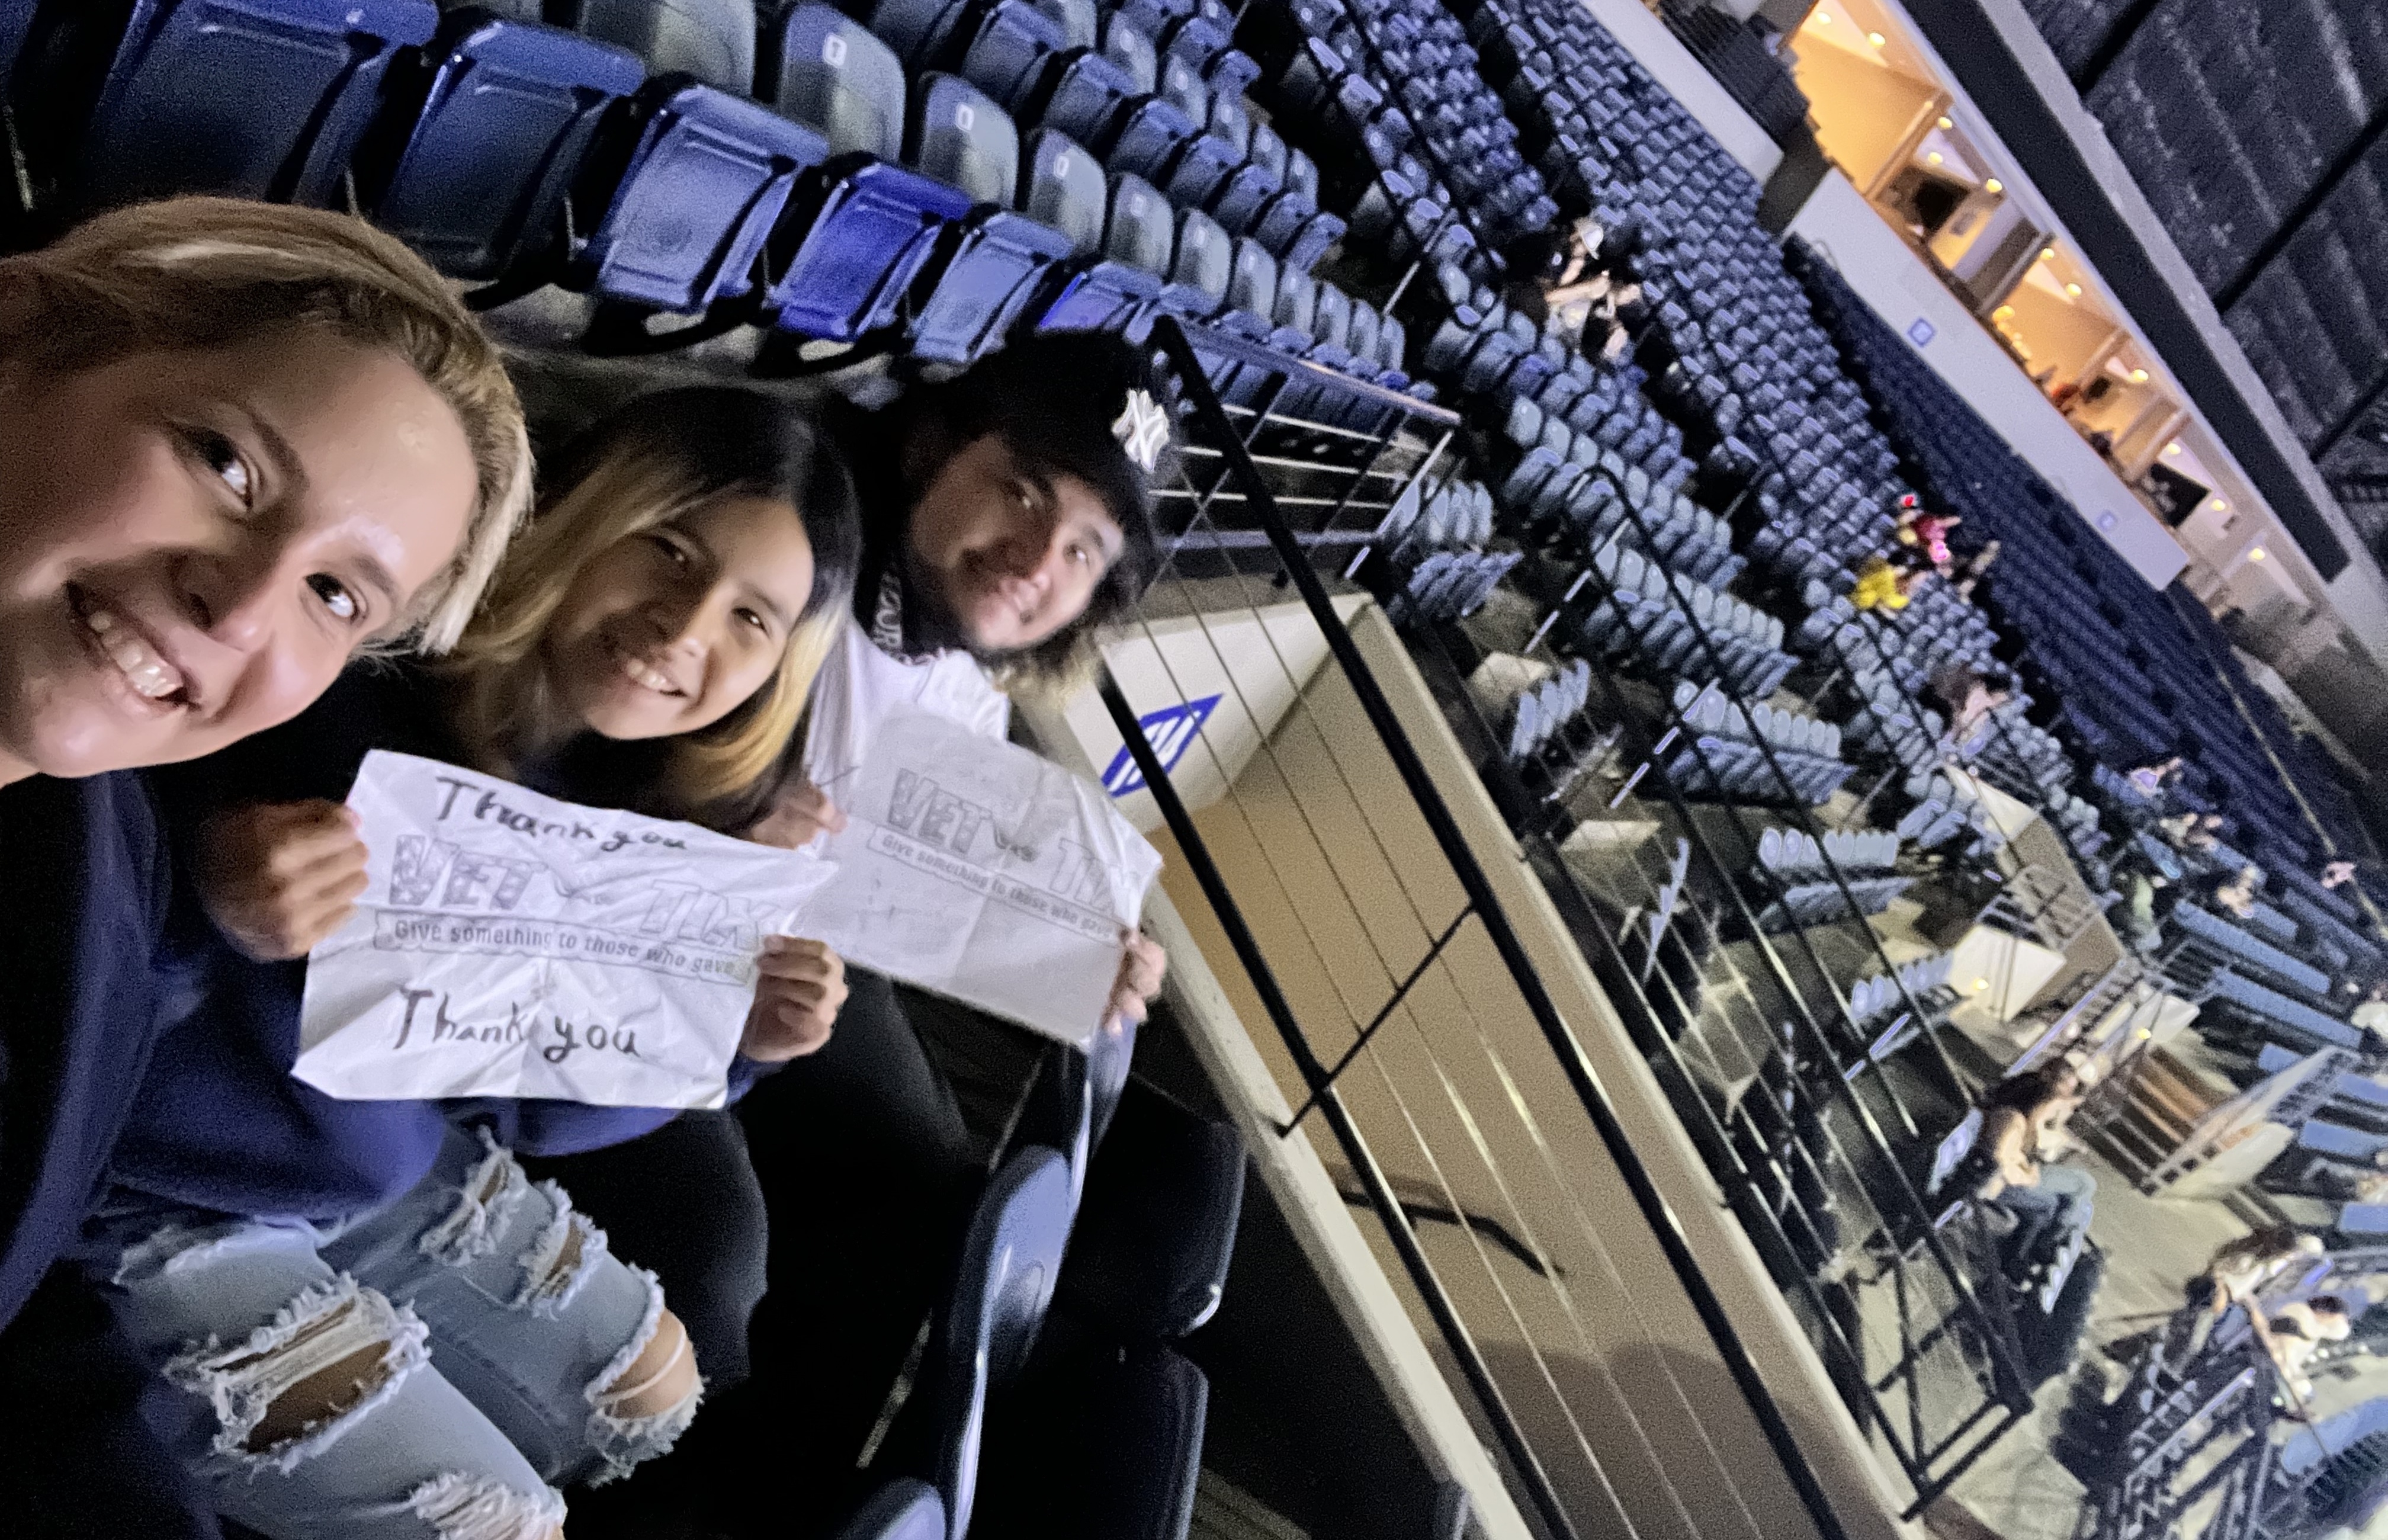 Thank you
VET TIX
Give something to those who gave
Thank you
VET TIX
Give something to those who gave
NY
114